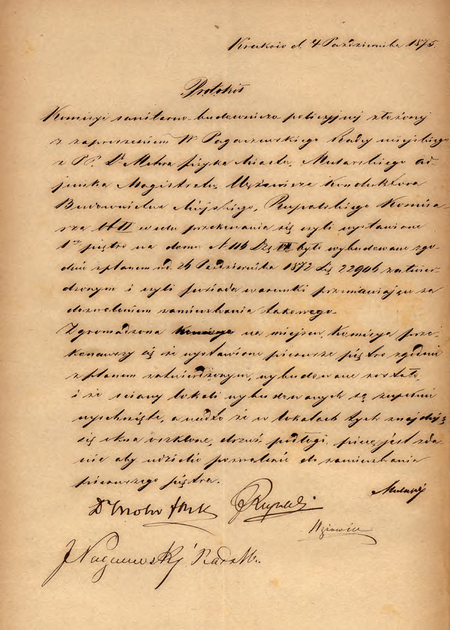 Kraków d 4 Października 1875.
Protokół
Komisyi sanitarno-budowniczo policyjnej złożonej
z zaproszeniem W Pagaczewskiego Radcy miejskiego
z PP. Dra Mohra fizyka Miasta, Mularskiego ad-
junkta Magistratu, Konduktora
Budownictwa Miejskiego, Rupalskiego Komisa-
rza w celu przekonania się czyli wystawione
1sze piętro na domu N 116 Dz VI były wybudowane zgo-
dnie z planem z d. 26 Października 1872 L 22906 zatwier-
dzonym i czyli posiada warunki przemawiające za
dozwoleniem zamieszkania takowego.
Zgromadzona na miejscu Komisya prze-
konawszy się że wystawione pierwsze piętro zgodnie
z planem zatwierdzonym, wybudowane zostało
i że ściany lokali wybudowanych są zupełnie
wyschnięte, a nadto że w lokalach tych znajdują
się okna oszklone, drzwi, podłogi, piece, jest zda-
nie aby udzielić pozwolenie do zamieszkania
pierwszego piętra.
Mularski
Dr Mohr fizyk